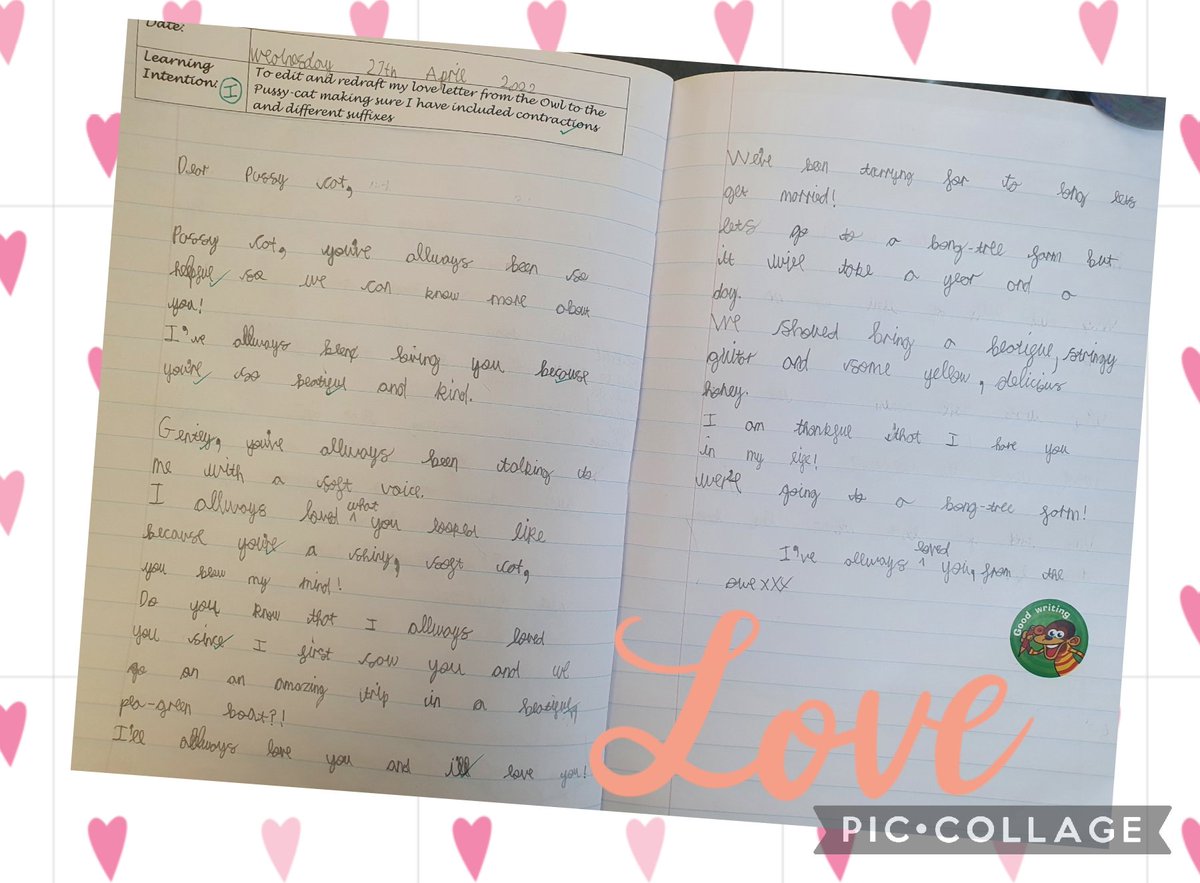 Date:
Wednesday 27th April 2022
Learning
Intention: I
To edit and redraft my love letter from the Owl to the
Pussy-cat making sure I have included contractions
and different suffixes
Dear Pussy cat,
Pussy cat, you've allways been so
helpful so we can know more about
you!
I've allways been loving you because
you're so beatiful and kind.
Gently, you've allways been talking to
me with a soft voice.
I allways loved what you looked like
because you're a shiny, soft cat,
you blow my mind!
Do you know that I allways loved
you since I first saw you and we
go on an amazing trip in a beatiful,
pea-green boat?!
I'll allways love you and i'll love you!
We've been tarrying for to long lets
get married!
lets go to a bong-tree farm but
it will take a year and a
day.
We shoued bring a beatiful, stringy
guitar and some yellow, delicius
honey.
I am thankful that I have you
in my life!
We're going to a bong-tree farm!
I've allways loved you, from the
owl xxx
Good writing
Love
PIC•COLLAGE